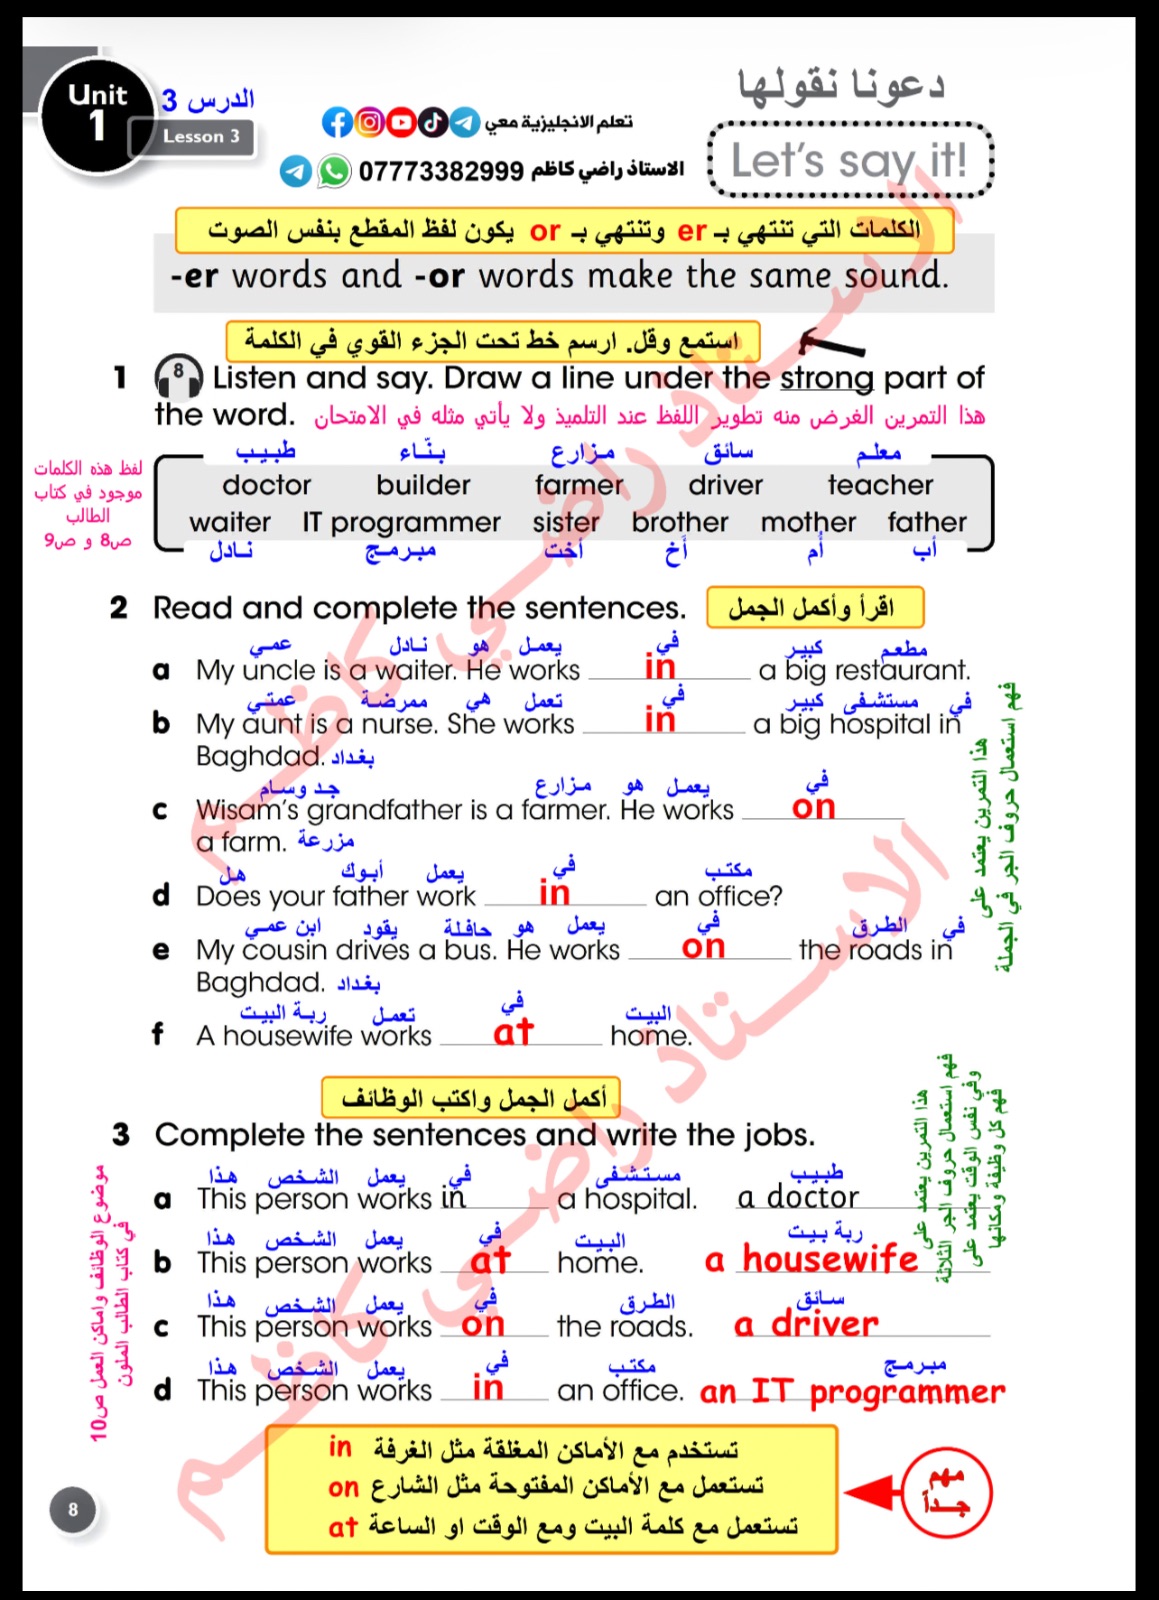 Unit
1
الدرس 3
Lesson 3
تعلم الانجليزية معي
الاستاذ راضي كاظم 07773382999
دعونا نقولها
Let's say it!
الكلمات التي تنتهي بـ er وتنتهي بـ or يكون لفظ المقطع بنفس الصوت
-er words and -or words make the same sound.
استمع وقل. ارسم خط تحت الجزء القوي في الكلمة
1 8 Listen and say. Draw a line under the strong part of
the word. هذا التمرين الغرض منه تطوير اللفظ عند التلميذ ولا يأتي مثله في الامتحان
لفظ هذه الكلمات
موجود في كتاب
الطالب
ص8 و ص9
طبيب بنّاء مزارع سائق معلم
doctor builder farmer driver teacher
waiter IT programmer sister brother mother father
نادل مبرمج أخت أخ أم أب
2 Read and complete the sentences. اقرأ وأكمل الجمل
عمي نادل هو يعمل في كبير مطعم
a My uncle is a waiter. He works in a big restaurant.
عمتي ممرضة هي تعمل في كبير مستشفى في
b My aunt is a nurse. She works in a big hospital in
Baghdad. بغداد
جد وسام مزارع هو يعمل في
c Wisam's grandfather is a farmer. He works on
a farm. مزرعة
هل أبوك يعمل في مكتب
d Does your father work in an office?
ابن عمي يقود حافلة هو يعمل في الطرق في
e My cousin drives a bus. He works on the roads in
Baghdad. بغداد
ربة البيت تعمل في البيت
f A housewife works at home.
هذا التمرين يعتمد على
فهم استعمال حروف الجر في الجملة
أكمل الجمل واكتب الوظائف
3 Complete the sentences and write the jobs.
هذا الشخص يعمل في مستشفى طبيب
a This person works in a hospital. a doctor
هذا الشخص يعمل في البيت ربة بيت
b This person works at home. a housewife
هذا الشخص يعمل في الطرق سائق
c This person works on the roads. a driver
هذا الشخص يعمل في مكتب مبرمج
d This person works in an office. an IT programmer
هذا التمرين يعتمد على
فهم استعمال حروف الجر الثلاثة
وفي نفس الوقت يعتمد على
فهم كل وظيفة ومكانها
موضوع الوظائف واماكن العمل ص10
في كتاب الطالب الملون
in تستخدم مع الأماكن المغلقة مثل الغرفة
on تستعمل مع الأماكن المفتوحة مثل الشارع
at تستعمل مع كلمة البيت ومع الوقت او الساعة
مهم
جداً
8
الاستاذ راضي كاظم
الاستاذ راضي كاظم